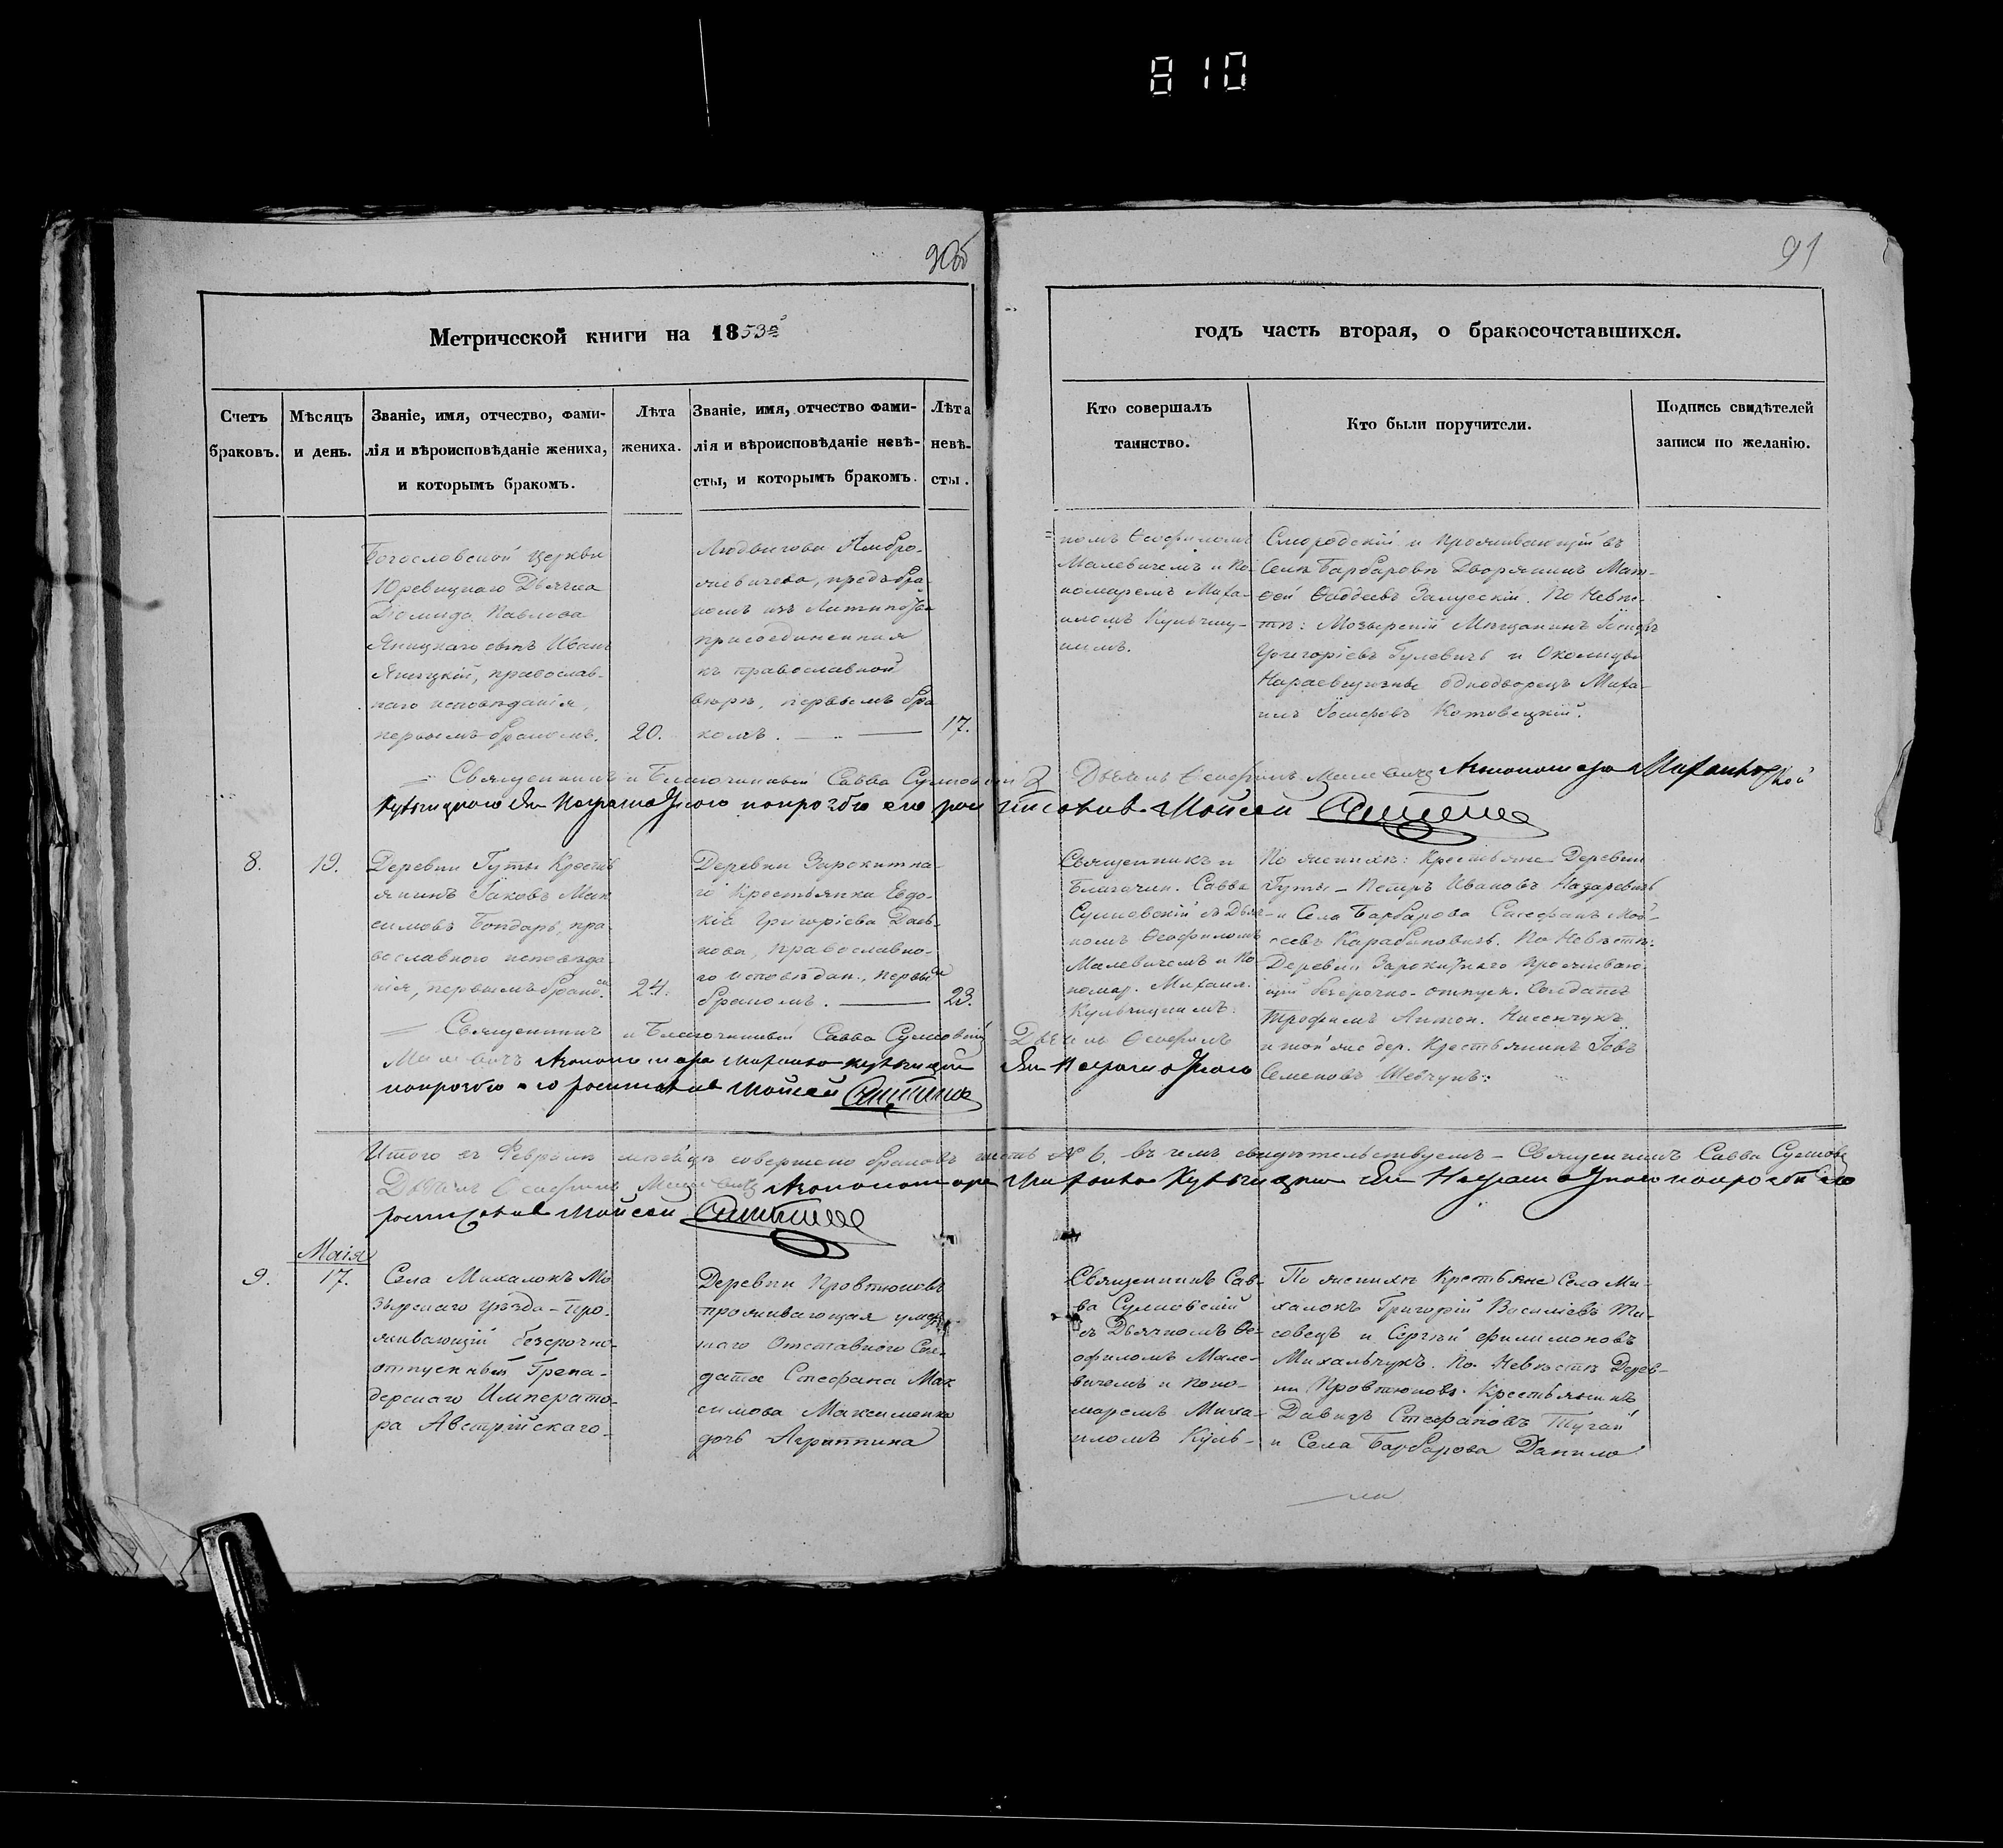 810
90об
91
Метрической книги на 1853й
годъ часть вторая, о бракосочставшихся.
Счетъ
браковъ.
Мѣсяцъ
и день.
Званіе, имя, отчество, фами-
лія и вѣроисповѣданіе жениха,
и которымъ бракомъ.
Лѣта
жениха.
Званіе, имя, отчество фами-
лія и вѣроисповѣданіе невѣ-
сты, и которымъ бракомъ.
Лѣта
невѣ-
сты.
Кто совершалъ
таинство.
Кто были поручители.
Подпись свидѣтелей
записи по желанію.
Богословской церкви
Юревицкаго Дьячка
Діомида Павлова
Яницкаго сынъ Иванъ
Яницкій, православ-
наго исповѣданія,
первымъ бракомъ.
20.
Людвигова Амбро-
жевичева, предъ бра-
комъ изъ
присоединенная
къ православной
вѣрѣ, первымъ бра
комъ.
17.
комъ Ѳеофиломъ
Малевичемъ и По-
номаремъ Миха-
иломъ Кульчиц-
кимъ.
Смородскій и проживающій въ
Селѣ Барбаровѣ Дворянинъ Мат-
ѳей Ѳаддеевъ Залускій. По Невѣ-
стѣ: Мозырскій Мѣщанинъ Іосифъ
Григоріевъ Гулевичъ и Околицы
однодворецъ Миха-
илъ Іосифовъ Котовецкій.
Священникъ и Благочинный Савва Сулковскій Дьячекъ Ѳеофилъ Малевичь Апономара Михаила
Кульчицкого За Неграмотного попрозбѣ его росписовался Мойсей
8.
19.
Деревни Гуты Кресть
янинъ Іаковъ Мак
симовъ Бондарь, пра
вославного исповѣда
нія, первымъ бракомъ.
24.
Деревни Зарокитна-
го Крестьянка Евдо-
кія Григоріева
православно-
го исповѣдан., первымъ
бракомъ.
23.
Священникъ и
Благочин. Савва
Сулковскій съ Дьяч-
комъ Ѳеофиломъ
Малевичемъ и По-
номар. Михаил.
Кульчицкимъ.
По женихѣ: Крестьяне Деревни
Гуты - Петръ Ивановъ Назаревичь
и Села Барбарова Стефанъ Мой-
сеевъ Карабановичь. По Невѣстѣ:
Деревни Зарокитнаго проживаю-
щій безсрочно-отпуск. Солдатъ
Трофимъ Антон. Нисенчукъ
и той же дер. Крестьянинъ Іовъ
Семеновъ Шевчукъ:
Священникъ и Благочинный Савва Сулковскій Дьячекъ Ѳеофилъ
Малевичъ Апономара Михаила Кульчицкого За Неграмотного
попрозбѣ его росписовался Мойсей
Итого въ Февралѣ мѣсяцѣ совершено браковъ шесть № 6. въ чемъ свидѣтельствуемъ - Священникъ Савва Сулковс
Дьячекъ Ѳеофилъ Малевичь Апономара Михаила Кульчицкого За Неграмотного попрозбѣ его
росписовался Мойсей
Маія
9.
17.
Села Михалокъ Мо
зырскаго уѣзда - про-
живающій безсрочно-
отпускный Грена-
дерскаго Императо-
ра Австрійскаго-
Деревни Кровтюковъ
проживающая умер-
шаго Отставного Сол-
дата Стефана Мак
симова Максименка
дочь Агриппина
Священникъ Сав-
ва Сулковскій
съ Дьячкомъ Ѳе-
офиломъ Мале-
вичемъ и поно-
маремъ Миха-
иломъ Куль-
По женихѣ Крестьяне Села Ми-
халокъ Григорій Василіевъ Ти-
совецъ и Сергѣй Филимоновъ
Михальчукъ. По Невѣстѣ Дерев-
ни Кровтюковъ Крестьянинъ
Давидъ Стефановъ Тугай
и Села Барбарова Данило